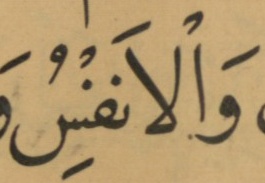 وَاْلاَنْفُسِ وَ